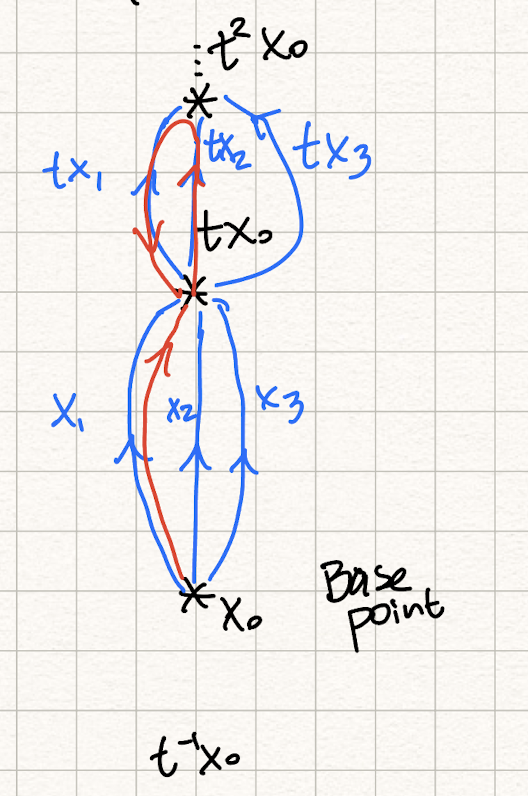 t²x₀
tx₁
tx₂
tx₃
tx₀
x₁
x₂
x₃
x₀
Base
point
t⁻¹x₀